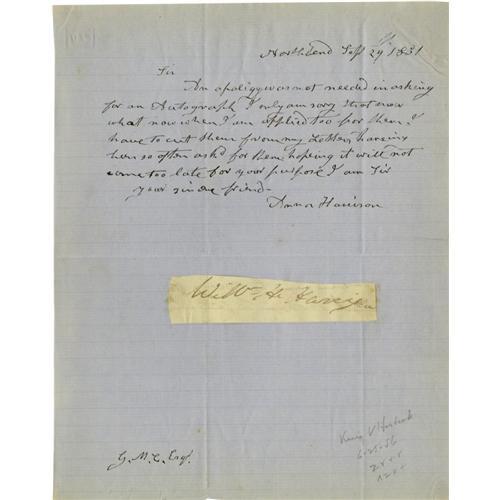 North bend Sept 29th 1831
Sir
An apoligy was not needed in asking
for an Autograph I only am sory that
now when I am applied too for them, I
have to cut them from my Letters, haveing
been so often asked for them, hoping it will not
come too late for your purpose I am Sir
your friend -
Anna Harrison
Wm H. Harrison
G. M. C. Esqr.
6-25-56